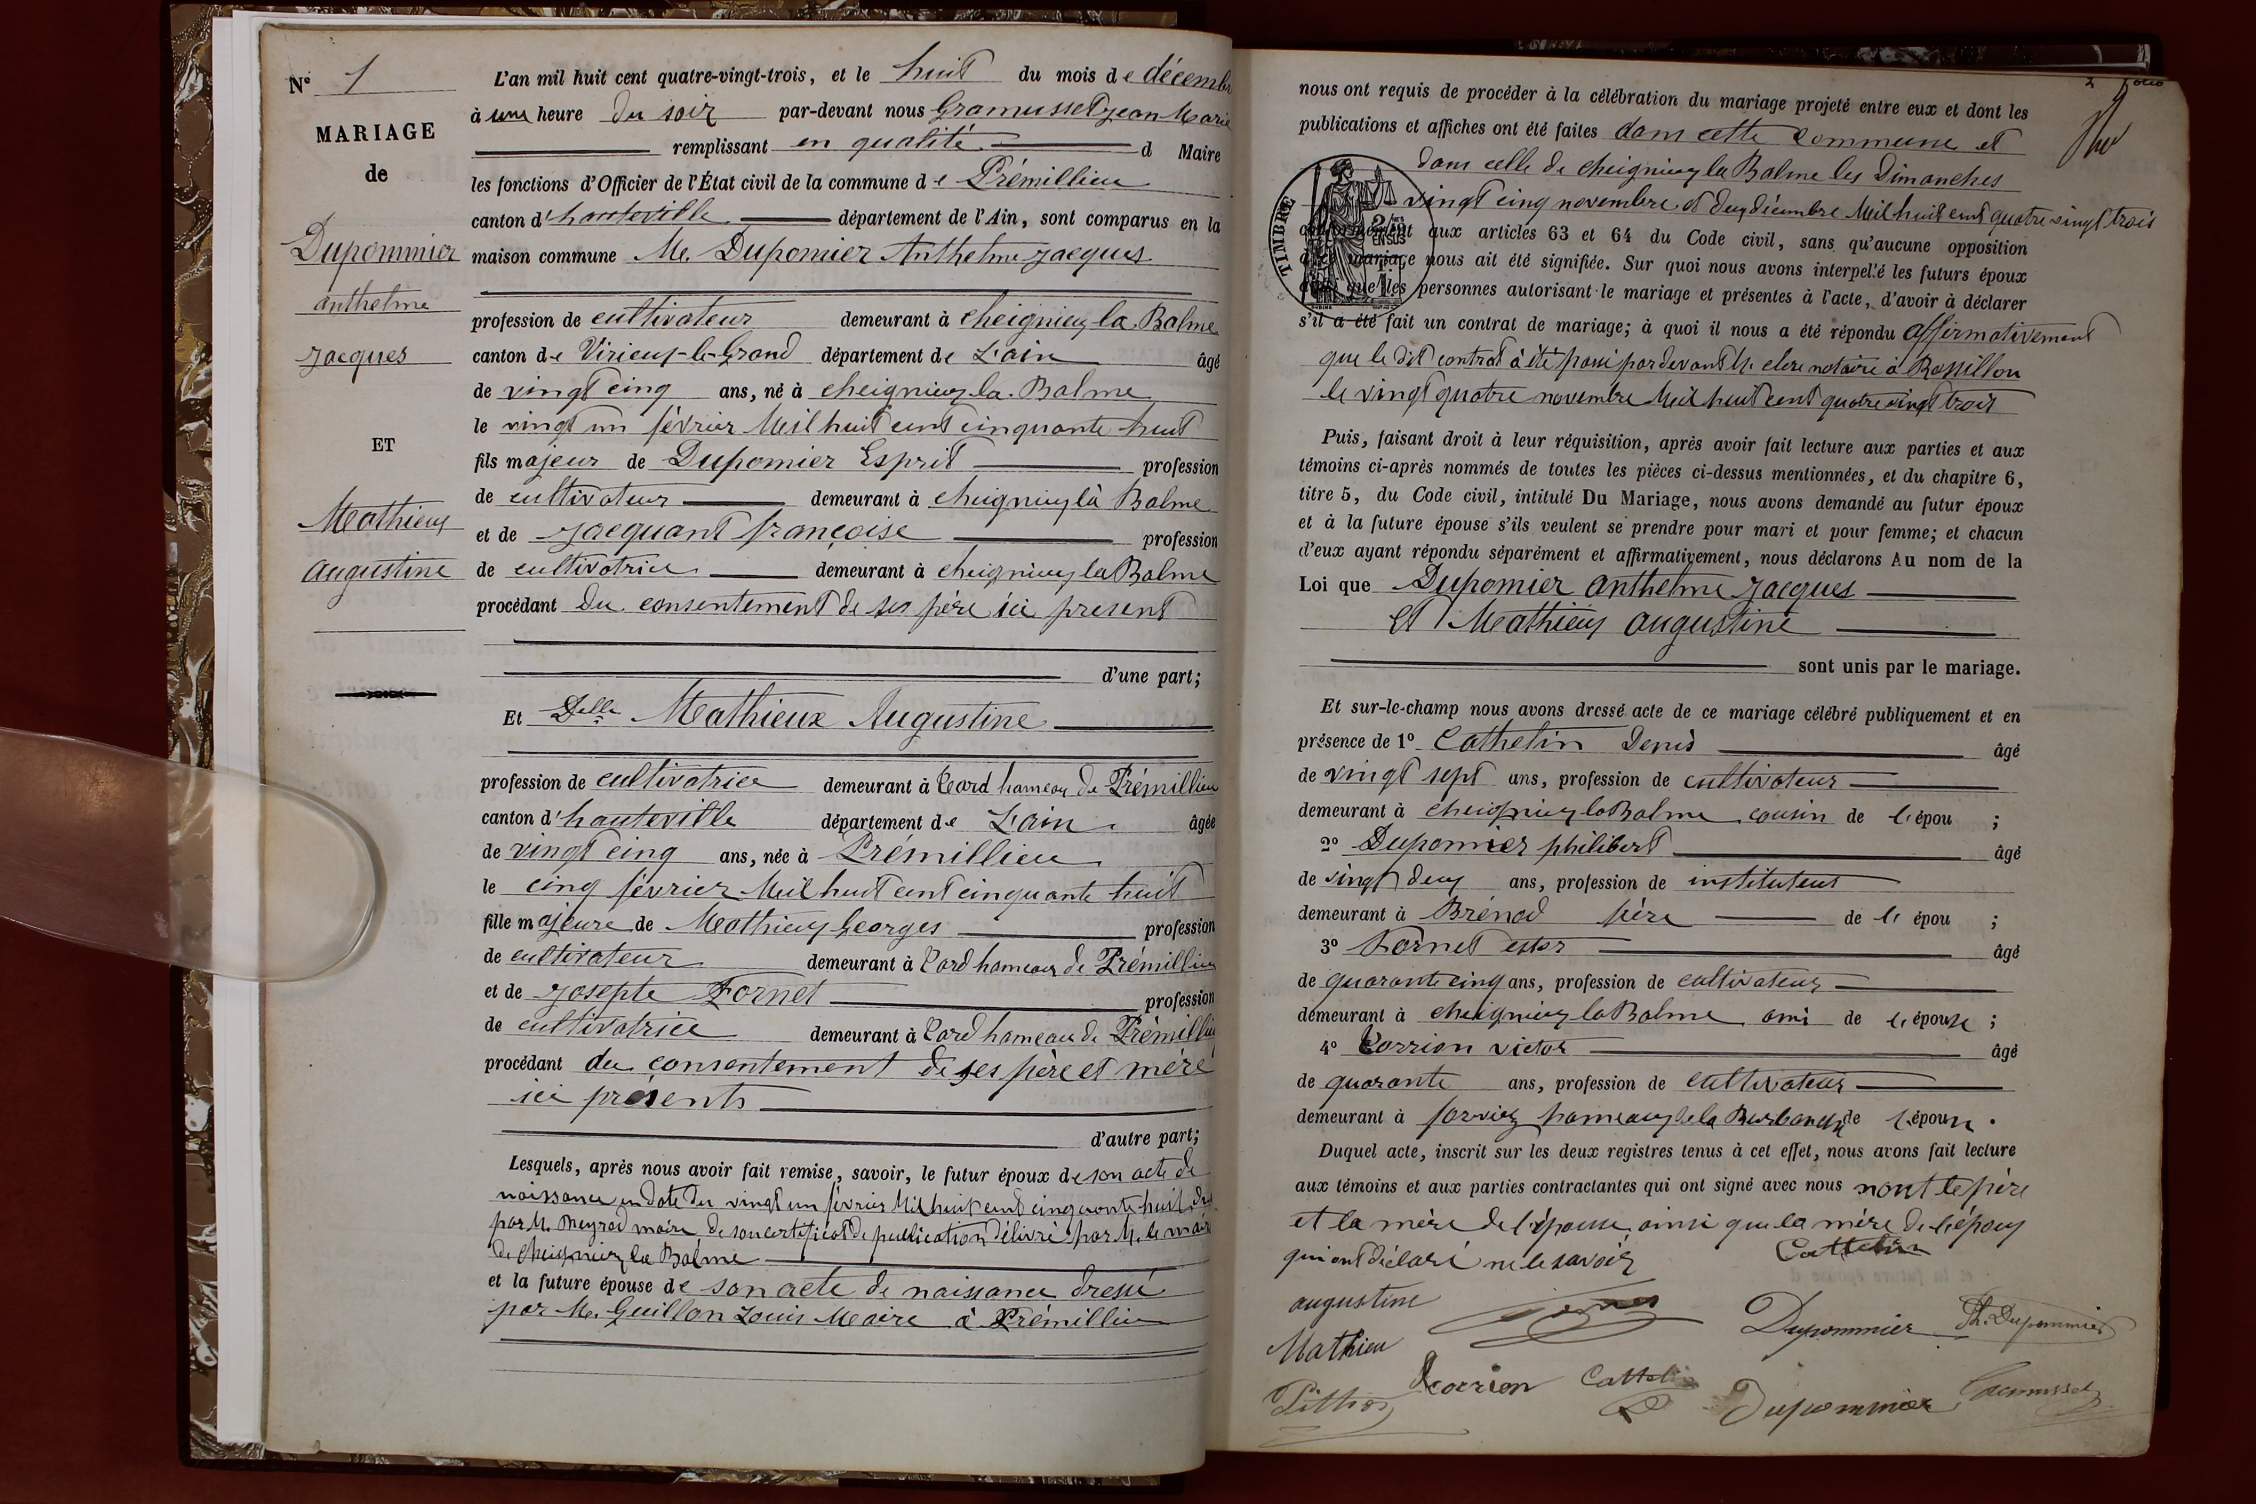 N° 1
MARIAGE
de
Dupommier
anthelme
Jacques
ET
Mathieux
augustine
L'an mil huit cent quatre-vingt-trois, et le huit du mois de décembre
à une heure du soir par-devant nous Gramusset Jean Marie
remplissant en qualité d Maire
les fonctions d'Officier de l'État civil de la commune de Prémillieu
canton d'hauteville département de l'Ain, sont comparus en la
maison commune Mr. Dupomier Anthelme Jacques
profession de cultivateur demeurant à cheignieux la Balme
canton de Virieux-le-Grand département de L'ain âgé
de vingt cinq ans, né à cheignieux la Balme
le vingt un février Mil huit cent cinquante huit
fils majeur de Dupomier Esprit profession
de cultivateur demeurant à cheignieux là Balme
et de Jacquant françoise profession
de cultivatrice demeurant à cheignieux la Balme
procédant du consentement de ses père ici present
d'une part;
Et Delle Mathieux Augustine
profession de cultivatrice demeurant à hameau de Prémillieu
canton d'hauteville département de L'ain âgée
de vingt cinq ans, née à Prémillieu
le cinq février Mil huit cent cinquante huit
fille majeure de Mathieux Georges profession
de cultivateur demeurant à hameau de Prémillieu
et de Josepte Fornet profession
de cultivatrice demeurant à hameau de Prémillieu
procédant du consentement de ses père et mère
ici présents
d'autre part;
Lesquels, après nous avoir fait remise, savoir, le futur époux de son acte de
naissance en date du vingt un février Mil huit cent cinquante huit
par M. Meyrod maire, de son certificat de publication délivré par M. le maire
de cheignieux la Balme
et la future épouse de son acte de naissance dressé
par Mr. Guillon Louis Maire à Prémillieu
2 folio
nous ont requis de procéder à la célébration du mariage projeté entre eux et dont les
publications et affiches ont été faites dans cette Commune et
dans celle de cheignieux la Balme les Dimanches
vingt cinq novembre et deux décembre Mil huit cent quatre vingt trois
TIMBRE
conformément aux articles 63 et 64 du Code civil, sans qu'aucune opposition
à ce mariage nous ait été signifiée. Sur quoi nous avons interpellé les futurs époux
ainsi que les personnes autorisant le mariage et présentes à l'acte, d'avoir à déclarer
s'il a été fait un contrat de mariage; à quoi il nous a été répondu affirmativement
que le dit contrat à été passé par devant M. clerc notaire à Rossillon
le vingt quatre novembre Mil huit cent quatre vingt trois
Puis, faisant droit à leur réquisition, après avoir fait lecture aux parties et aux
témoins ci-après nommés de toutes les pièces ci-dessus mentionnées, et du chapitre 6,
titre 5, du Code civil, intitulé Du Mariage, nous avons demandé au futur époux
et à la future épouse s'ils veulent se prendre pour mari et pour femme; et chacun
d'eux ayant répondu séparément et affirmativement, nous déclarons Au nom de la
Loi que Dupomier anthelme Jacques
et Mathieux augustine
sont unis par le mariage.
Et sur-le-champ nous avons dressé acte de ce mariage célébré publiquement et en
présence de 1° Cathelin Denis âgé
de vingt sept ans, profession de cultivateur
demeurant à cheignieux la Balme cousin de l'épou ;
2° Dupommier philibert âgé
de vingt deux ans, profession de instituteur
demeurant à Brénod frère de l' épou ;
3° Fornet âgé
de quarante cinq ans, profession de cultivateur
demeurant à cheignieux la Balme ami de l'épouse ;
4° Corrion victor âgé
de quarante ans, profession de cultivateur
demeurant à hameaux de la Burbanche de l'épouse.
Duquel acte, inscrit sur les deux registres tenus à cet effet, nous avons fait lecture
aux témoins et aux parties contractantes qui ont signé avec nous non le père
et la mère de l'épouse, ainsi que la mère de l'époux
qui ont déclaré ne le savoir
Cattelin
augustine
Mathieu
Dupommier
Ph. Dupommier
Corrion
Cattelin
Dupommier
Gramusset